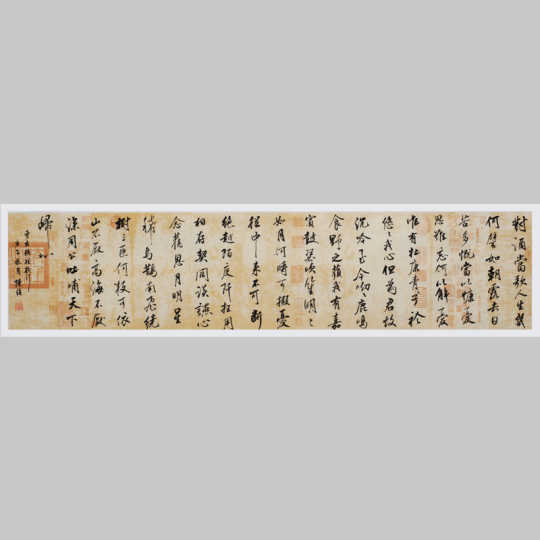 對酒當歌人生幾
何譬如朝露去日
苦多慨當以慷憂
思難忘何以解憂
唯有杜康青〻子衿
悠〻我心但為君故
沉吟至今呦〻鹿鳴
食野之蘋我有嘉
賓鼓瑟吹笙明〻
如月何時可掇憂
從中來不可斷
絕越陌度阡枉用
相存契闊談讌心
念舊恩月明星
稀烏鵲南飛繞
樹三匝何枝可依
山不厭高海不厭
深周公吐哺天下
歸心